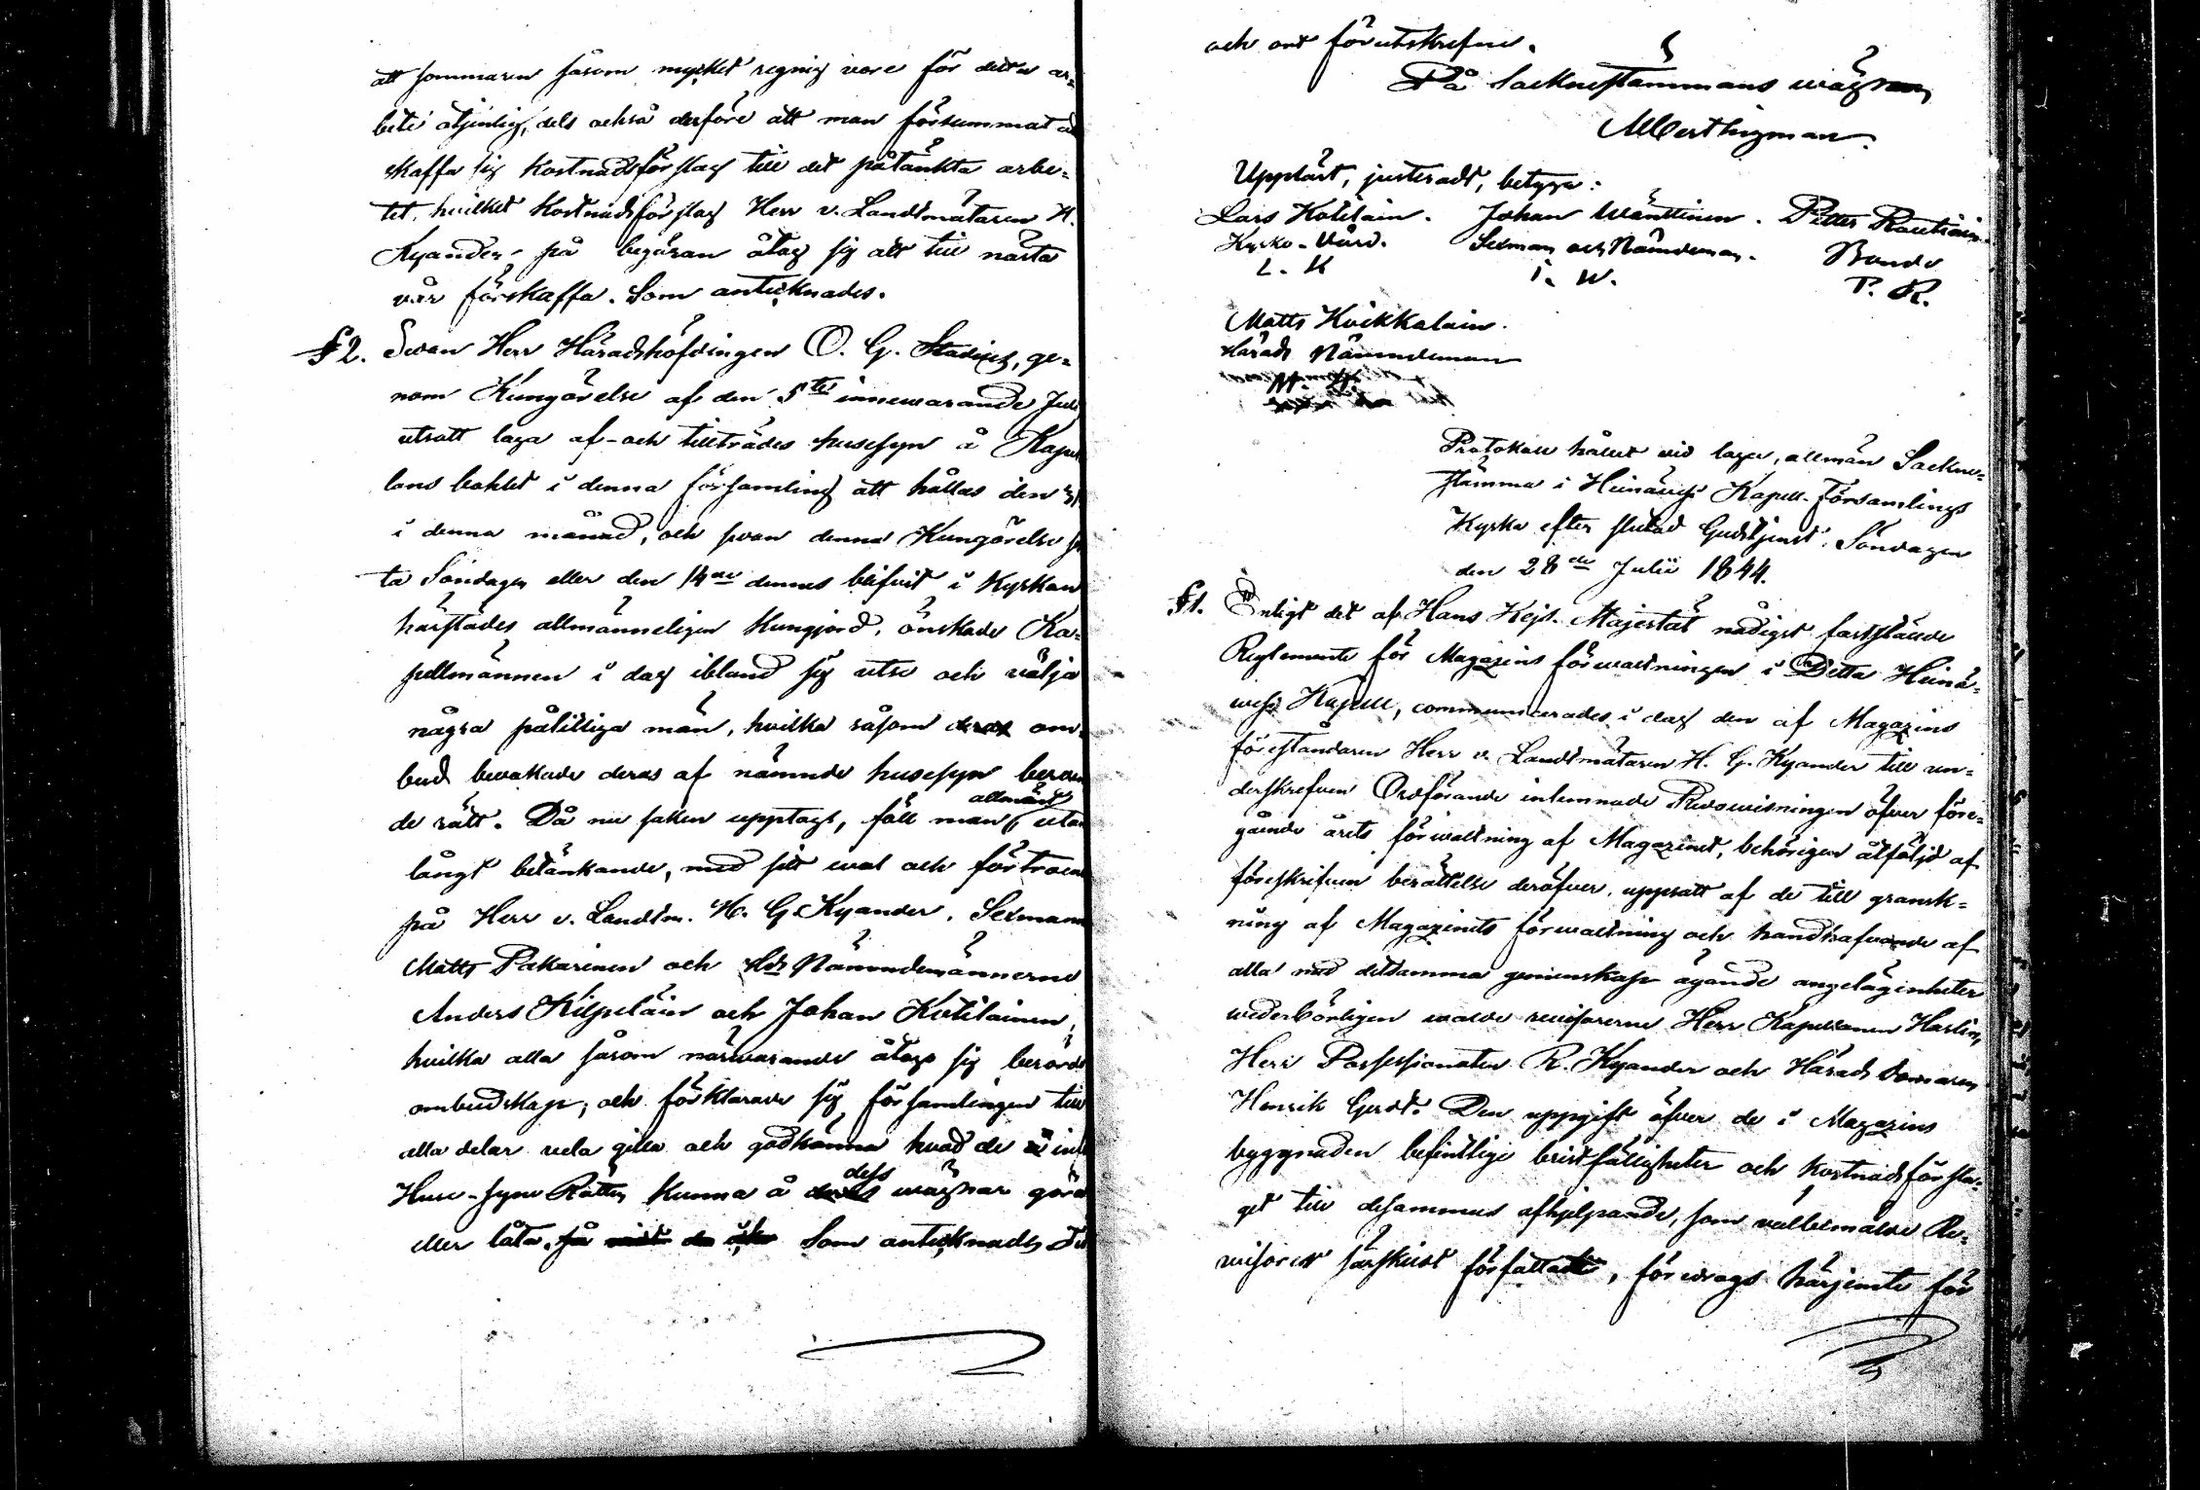 att sommaren såsom mycket regnig vore för detta ar-
bete otjenlig, dels också derföre att man försummat at
skaffa sig kostnadsförslag till det påtänkta arbe-
tet, hvilket kostnadsförslag Herr v. Landtmätaren H.
Kyander på begäran åtog sig att till nästa
vår förskaffa. Som antecknades.
§ 2. Sedan Herr Häradshöfdingen O. G. ge-
nom Kungörelse af den 5te innewarande Juli
utsatt laga af- och tillträdes husesyn å Kapel
lans bohlet i denna församling att hållas den 31
i denna månad, och sedan denna Kungörelse
ta Söndagen eller den 14de dennes blifvit i Kyrkan
härstädes allmänneligen kungjord, önskade Ka-
pellmännen i dag ibland sig utse och välja
några pålitliga män, hvilka såsom deras om-
bud bevakade deras af nämnde husesyn beroen
de rätt. Då nu saken upptags, föll man allmänt utan
långt betänkande, med sitt wal och förtroende
på Herr v. Landtm. H. G. Kyander, Sexmann
Matts Pakarinen och Hds Nämndemännerne
Anders Kilpeläin och Johan Kotilainen,
hvilka alla såsom närwarande åtogo sig berörde
ombudskap; och förklarade sig församlingen till
alla delar vela gilla och godkänna hvad de inf
Huse-syne Rätten kunna å dess wägnar göra
eller låta. Som antecknades
och ort förutskrefne.
På Socknestämmans wägnar,
Alb Perthigman.
Uppläst, justeradt, betyga:
Lars Kotilain. Johan Wänttinen. Petter Rautiain.
Kyrko-Värd. Sexman och Nämdeman. Bonde
L. K I. W. P. R.
Matts Kvikkalain.
Härads Nämndeman
M. K.
Protokoll hållet vid laga, allmän Sockne-
stämma i Heinäwesi Kapell-Församlings
Kyrka efter slutad Gudstjenst, Söndagen
den 28de Julii 1844.
§1. Enligt det af Hans Kejs. Majestät nådigst fastställde
Reglemente för Magazins förwaltningen i Detta Heinä-
wesi Kapell, communicerades i dag den af Magazins
föreståndaren Herr v. Landtmätaren H. G. Kyander till un-
derskrefven Ordförande inlemnade Redowisningen öfver före-
gående årets förwaltning af Magazinet, behörigen åtföljd af
föreskrifven berättelse deröfver, uppsatt af de till gransk-
ning af Magazinets förwaltning och handhafwande af
alla med detsamma gemenskap ägande angelägenheter
wederbörligen walde revisorerne Herr Kapellanen Harlin,
Herr Possessionaten R. Kyander och Härads Domaren
Henrik Gerdt. Den uppgift öfver de i Magazins
byggnaden befintlige bristfälligheter och kostnadsförsla-
get till desammas afhjelpande, som wälbemälde Re-
visorer särskildt författat, föredrogs härjemte för